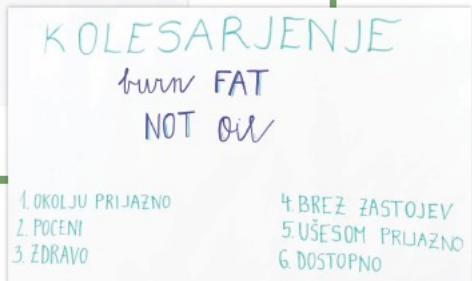 KOLESARJENJE
burn FAT
NOT Oil
1. OKOLJU PRIJAZNO
2. POCENI
3. ZDRAVO
4. BREZ ZASTOJEV
5. UŠESOM PRIJAZNO
6. DOSTOPNO